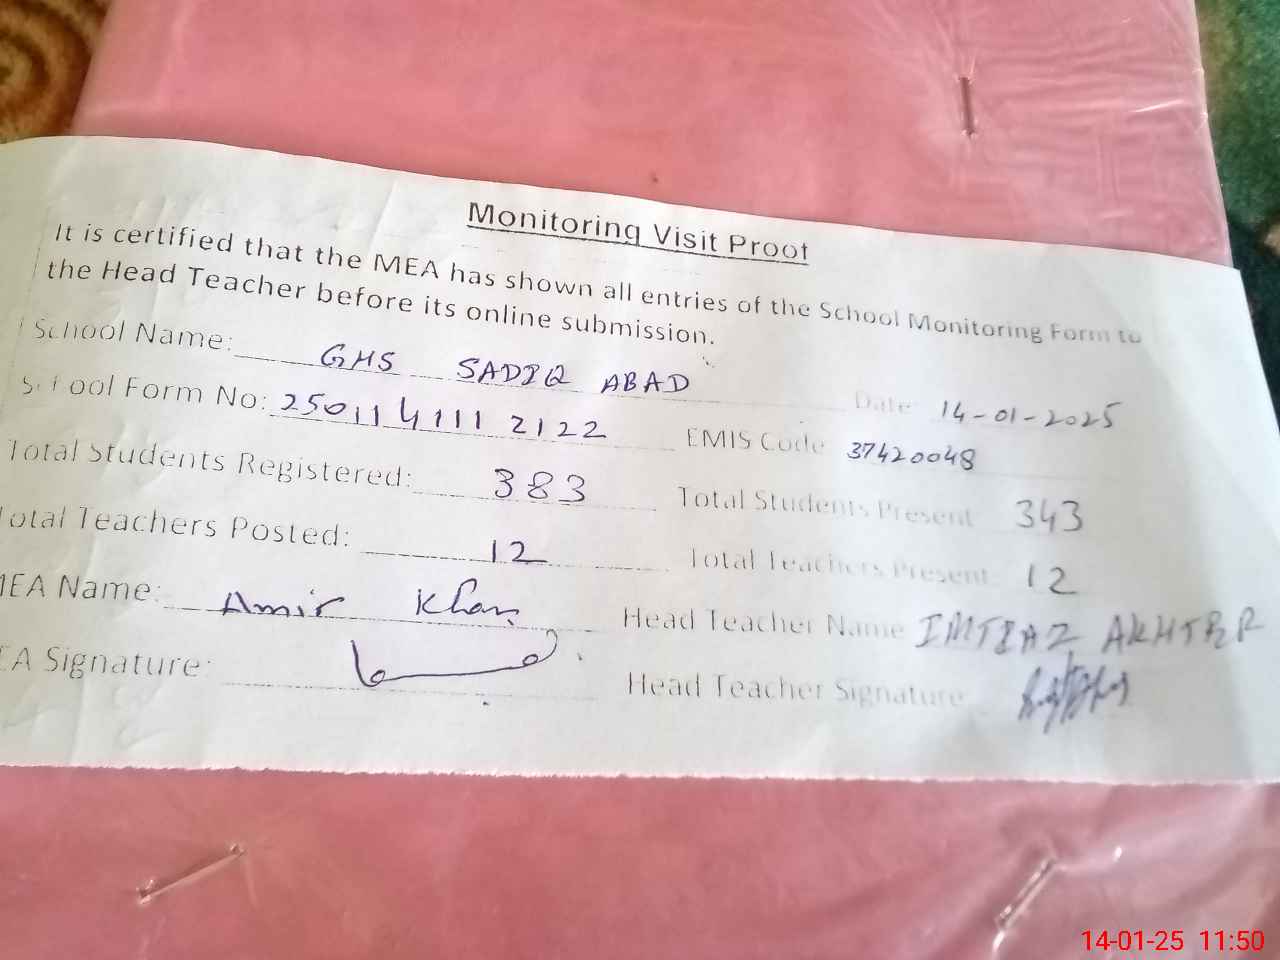 Monitoring Visit Proof
It is certified that the MEA has shown all entries of the School Monitoring Form to
the Head Teacher before its online submission.
School Name: GHS SADIQ ABAD
Date: 14-01-2025
School Form No: 250114111 2122 EMIS Code 37420048
Total Students Registered: 383 Total Students Present 343
Total Teachers Posted: 12 Total Teachers Present: 12
MEA Name: Amir Khan Head Teacher Name IMTIAZ AKHTER
EA Signature: Head Teacher Signature
14-01-25 11:50